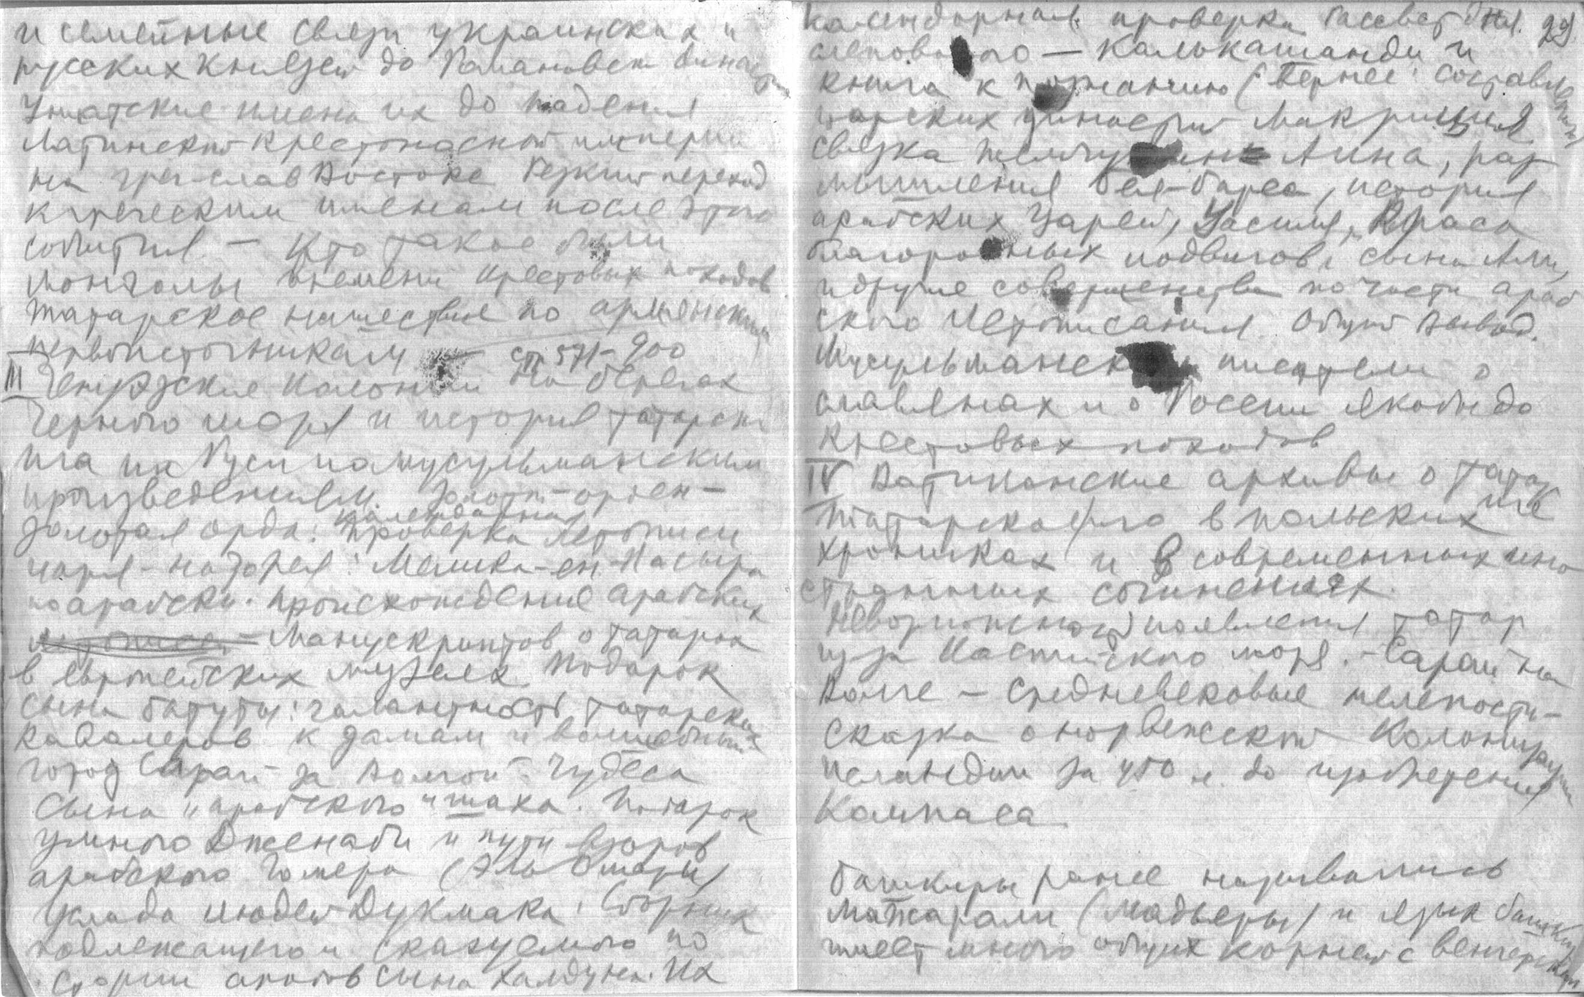 и семейные связи украинских и
русских князей до Романовской династии
Униатские имена их до падения
Латинской крестоносной империи
на греч-слав Востоке Резкий переход
к греческим именам после этого
события — Кто такое были
монголы времени крестовых походов
татарское нашествие по армянским
первоисточникам — стр 571-900
III Генуэзские колонии на берегах
Черного моря и история татарск
ига на Руси по мусульманским
произведениям. Золотой-орден-
Золотая орда: Календарная
проверка летописи
царя-надзрея: Мелика-ен-Насыра
по арабски. Происхождение арабских
Манускриптов о татарах
в европейских музеях Подарок
сына батуты: галантность татарских
кавалеров к дамам и волшебный
город Сарай за Волгой. Чудеса
сына "арабского" шаха. Подарок
умного Дженаби и пути взоров
арабского Гомера (Эль Омари)
Услада людей Дукмака: Сборник
подлежащего и сказуемого по
истории арабов сына Халдуна. Их
календарная проверка Рассвет для 29
слеповатого — Калькашанди и
книга к познанию (вернее: составлению
царских династий Макризия
связка жемчужин Аина, раз
мышления Бея-барса, история
арабских Царей, Василя, Краса
благородных подвигов, сына Али,
и другие совершенства по части араб
ского летописания. Общий вывод.
Мусульманские писатели о
славянах и о России якобы до
крестовых походов
IV Ватиканские архивы о татар
иге
татарское иго в польских
хрониках и в современных ино
странных сочинениях.
Невозможность появления татар
из за Каспийского моря. — Сарай на
Волге — Средневековые нелепости —
Сказка о норвежской Колонизации
Исландии за 450 л. до изобретения
Компаса
башкиры ранее назывались
мажарами (мадьяры) и язык башкир
имеет много общих корней с венгерским